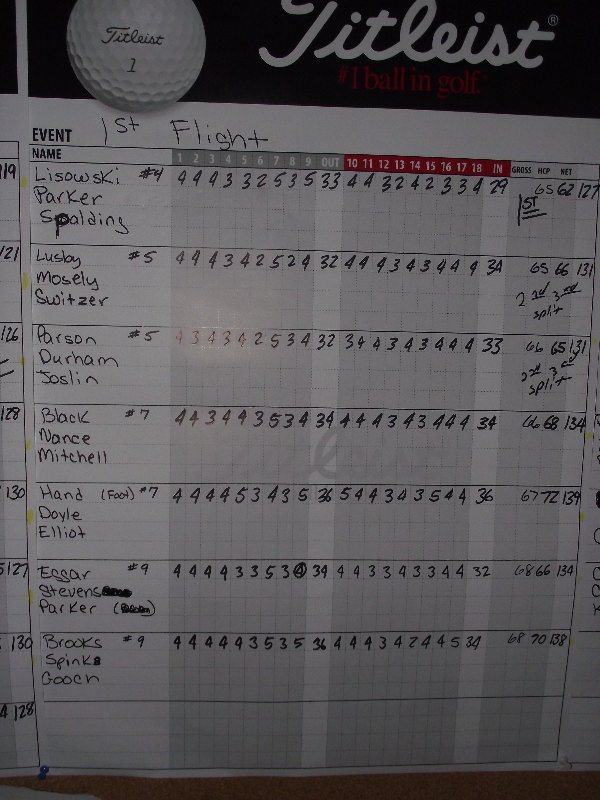 Titleist
1
Titleist®
#1 ball in golf.
EVENT 1st Flight
NAME 1 2 3 4 5 6 7 8 9 OUT 10 11 12 13 14 15 16 17 18 IN GROSS HCP NET
119 Lisowski #4 4 4 4 3 3 2 5 3 5 33 4 4 3 2 4 2 3 3 4 29 65 62 127
Parker 1ST
Spalding
121 Lusby #5 4 4 4 3 4 2 5 2 4 32 4 4 4 3 4 3 4 4 4 34 65 66 131
Mosely 2nd 3rd
Switzer split
126 Parson #5 4 3 4 3 4 2 5 3 4 32 3 4 4 3 4 3 4 4 4 33 66 65 131
Durham 2nd 3rd
Joslin split
128 Black #7 4 4 3 4 4 3 5 3 4 34 4 4 4 3 4 3 4 4 4 34 66 68 134
Nance
Mitchell
130 Hand (Foot) #7 4 4 4 4 5 3 4 3 5 36 5 4 4 3 4 3 5 4 4 36 67 72 139
Doyle
Elliot
127 Eggar #9 4 4 4 4 3 3 5 3 4 34 4 4 3 3 4 3 3 4 4 32 68 66 134
Stevens
Parker
130 Brooks #9 4 4 4 4 4 3 5 3 5 36 4 4 4 3 4 2 4 4 5 34 68 70 138
Spinks
Gooch
128